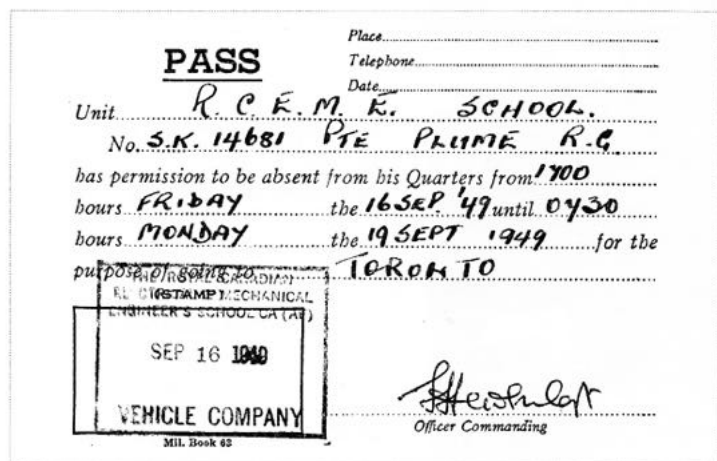 Place
PASS
Telephone
Date
Unit R. C. E. M. E. SCHOOL.
No. S.K. 14681 PTE PLUME R.G.
has permission to be absent from his Quarters from 1700
hours FRIDAY the 16 SEP. '49 until 0730
hours MONDAY the 19 SEPT 1949 for the
purpose of going to TORONTO
THE ROYAL CANADIAN
(STAMP) MECHANICAL
ENGINEER'S SCHOOL CA (AF)
SEP 16 1949
VEHICLE COMPANY
Officer Commanding
Mil. Book 63